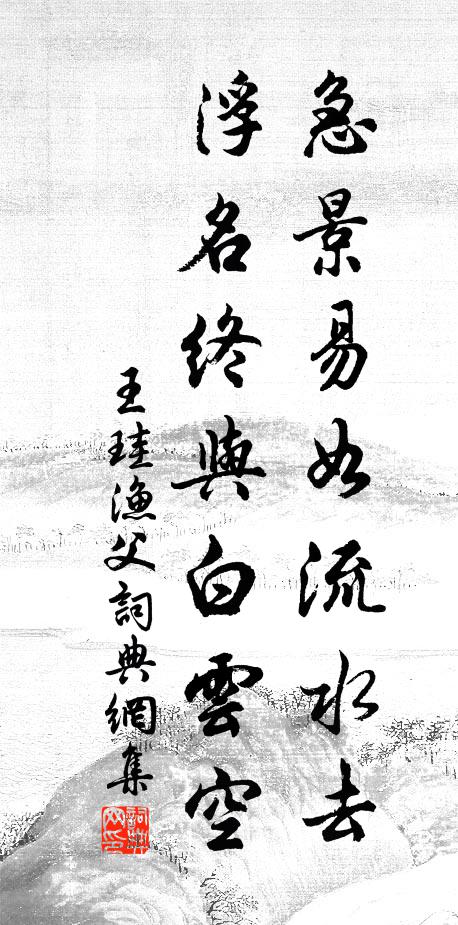 急景易如流水去
浮名終與白雲空
王珪漁父詞典網集